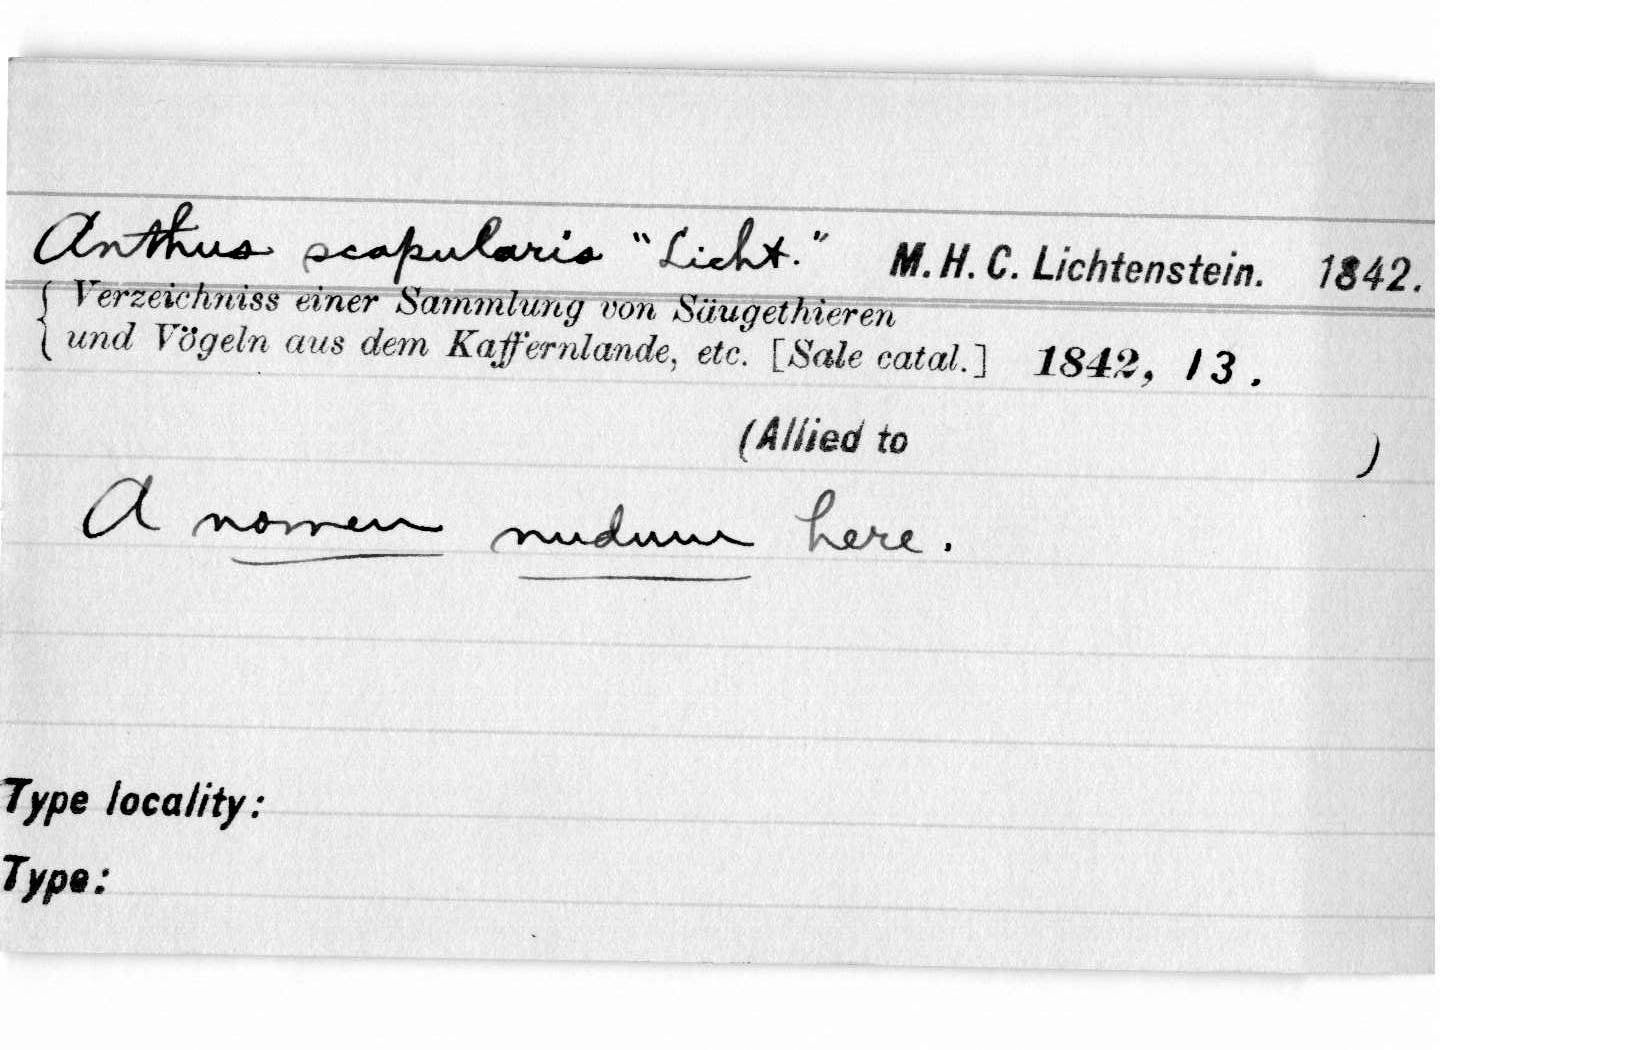 Anthus scapularis "Licht." M. H. C. Lichtenstein. 1842.
{ Verzeichniss einer Sammlung von Säugethieren
und Vögeln aus dem Kaffernlande, etc. [Sale catal.] 1842, 13.
(Allied to )
A nomen nudum here.
Type locality:
Type: